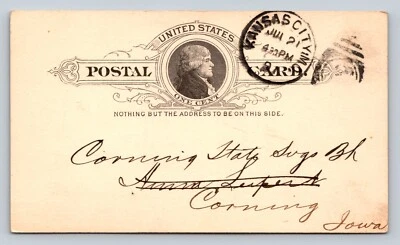 UNITED STATES
POSTAL CARD.
ONE CENT
NOTHING BUT THE ADDRESS TO BE ON THIS SIDE.
KANSAS CITY M
430 PM
Corning State Svgs Bk
Corning
Iowa